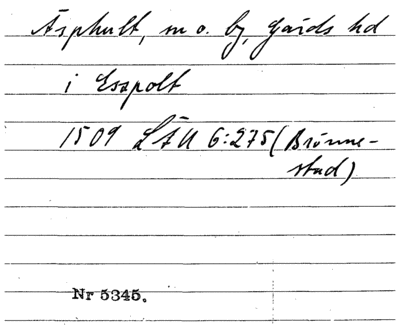 Äsphult, sn o. by, Gärds hd
i Eszpolt
1509 LÄU 6:275 (Brönne-
stad)
Nr 5345.